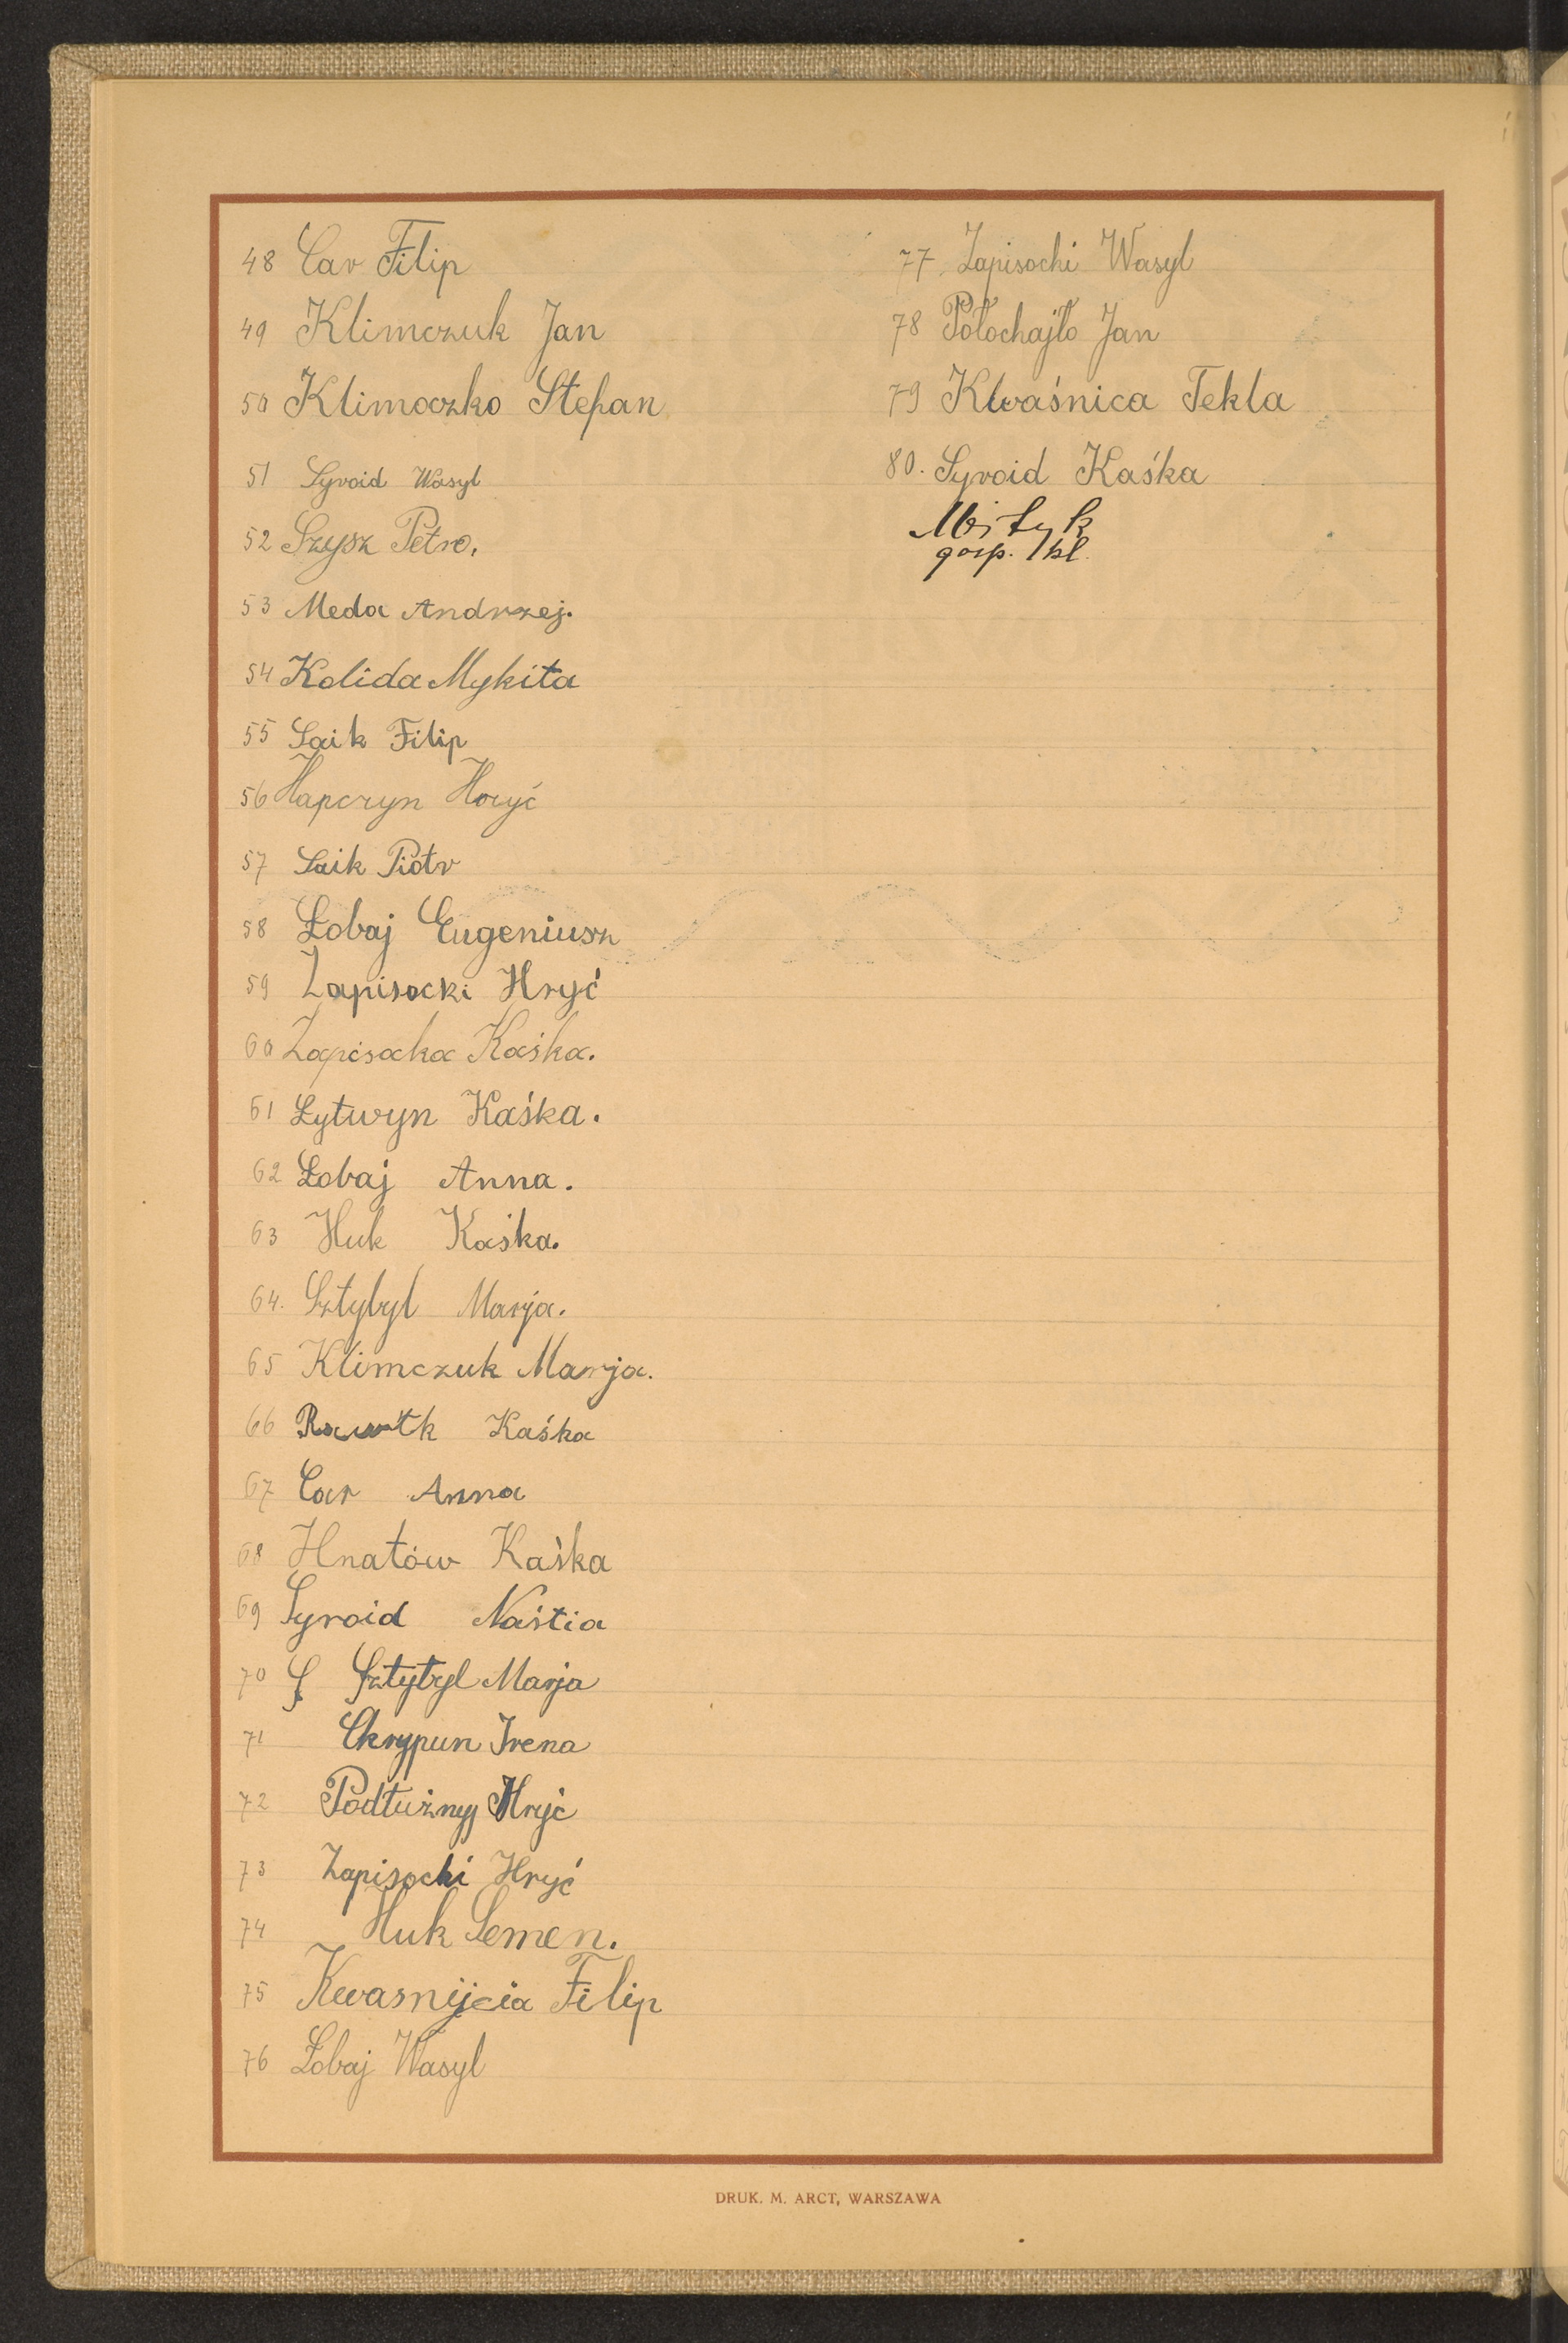 48 Car Filip
49 Klimczuk Jan
50 Klimoczko Stefan
51 Syroid Wasyl
52 Szysz Petro.
53 Meda Andrzej.
54 Kolida Mykita
55 Saik Filip
56 Hapczyn Hryć
57 Saik Piotr
58 Łobaj Eugeniusz
59 Zapisocki Hryć
60 Zapisocka Kaśka.
61 Łytwyn Kaśka.
62 Łobaj Anna.
63 Huk Kaśka.
64. Sztybyl Marja.
65 Klimczuk Marja.
66 Kaśka
67 Car Anna
68 Hnatów Kaśka
69 Syroid Naśtia
70 S Sztybyl Marja
71 Skrypun Irena
72 Podłużnyj Hryć
73 Zapisocki Hryć
74 Huk Semen.
75 Kwasnijcia Filip
76 Łobaj Wasyl
77. Zapisocki Wasyl
78 Połochajło Jan
79 Kwaśnica Tekla
80. Syroid Kaśka
gosp. kl.
DRUK. M. ARCT, WARSZAWA